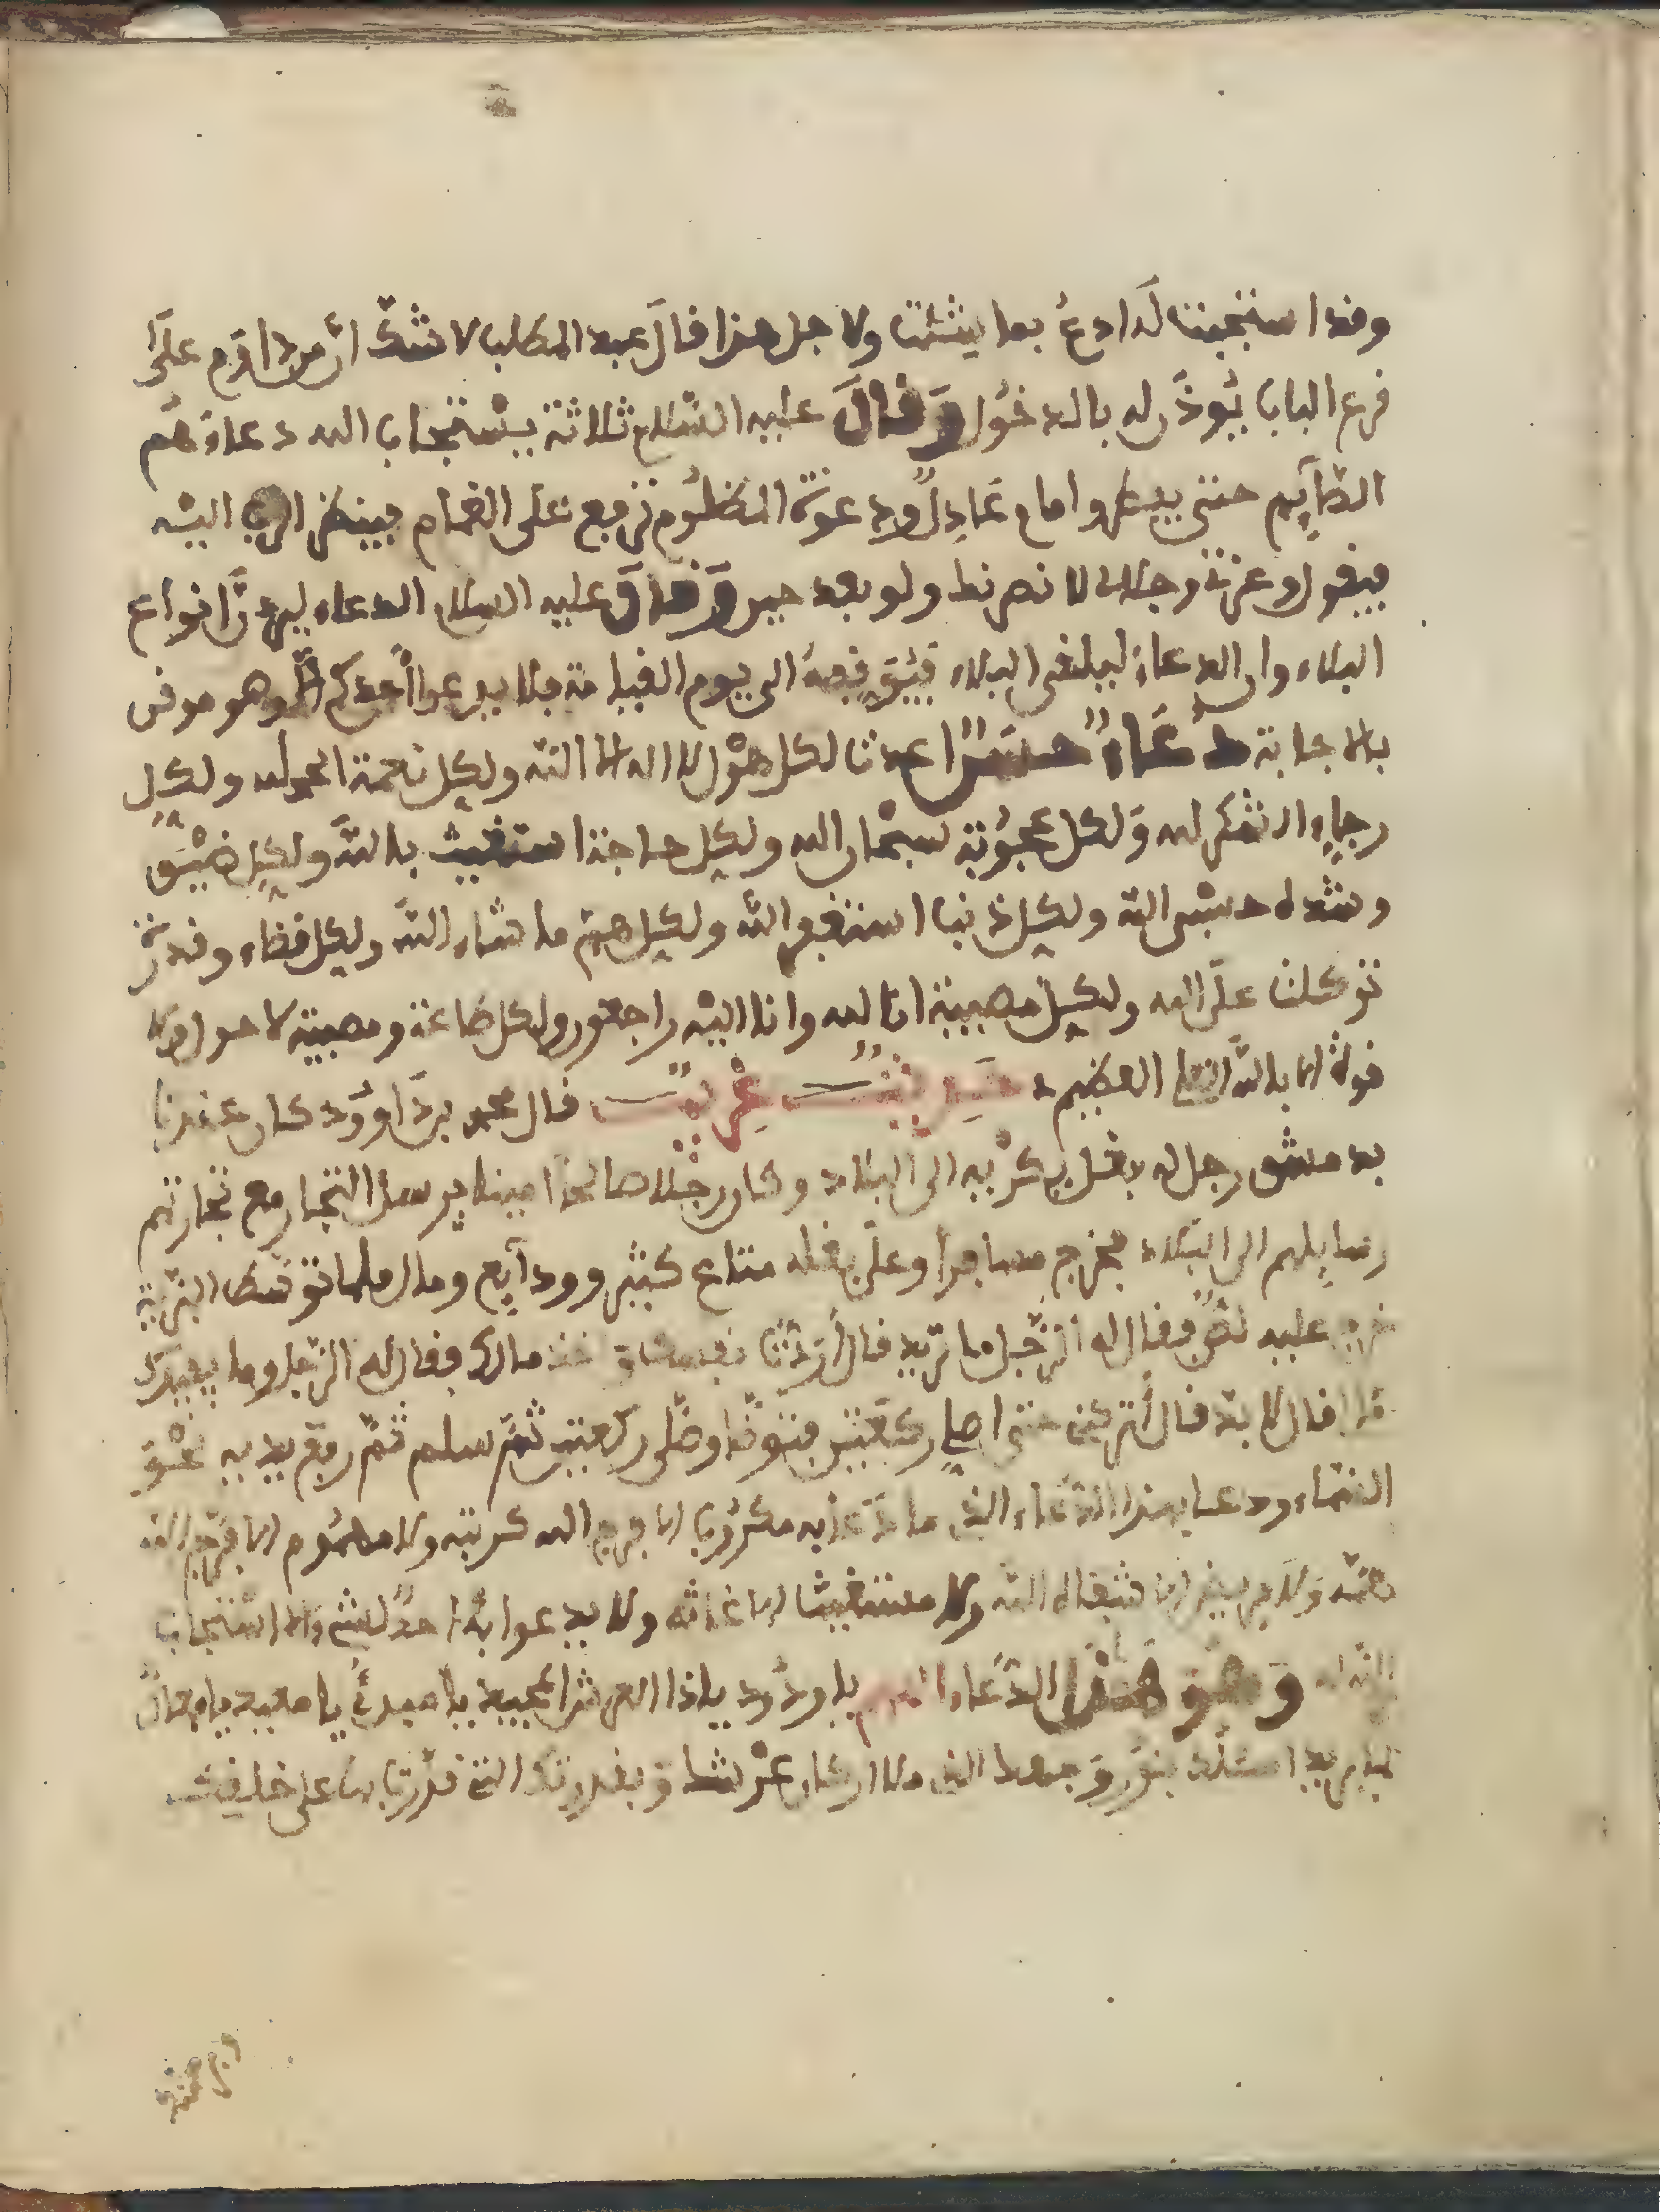 وقد استجبت له ادع بما شئت ولاجل هذا قال عبد المطلب لا شك ان من داوم على
قرع الباب يوذن له بالدخول وقال عليه السلام ثلاثة يستجاب الله دعاءهم
الصائم حتى يفطر وامام عادل ودعوة المظلوم ترفع على الغمام فينظر الرب اليه
فيقول وعزتي وجلالي لا نصرنك ولو بعد حين وقال عليه السلام الدعاء ليرد انواع
البلاء وان الدعاء ليلقى البلاء الى يوم القيامة فلا يدعوا احدكم الا وهو موقن
بالاجابة دعاء حسن اعددت لكل هول لا اله الا الله ولكل نعمة الحمد لله ولكل
رجاء الشكر لله ولكل عجوبة سبحان الله ولكل حاجة استغيث بالله ولكل ضيق
وشدة حسبي الله ولكل ذنب استغفر الله ولكل هم ما شاء الله ولكل قضاء وقدر
توكلت على الله ولكل مصيبة انا لله وانا اليه راجعون ولكل طاعة ومصيبة لا حول ولا
قوة الا بالله العلي العظيم حديث غريب قال محمد بن داوود كان عندنا
بدمشق رجل له بغل يكريه الى البلاد وكان رجلا صالحا امينا يرسل التجار مع تجارتهم
رسايلهم الى البلاد فخرج مسافرا وعلى بغله متاع كثير وودايع ومال فلما توسط البرية
خرج عليه لص فقال له الرجل ما تريد قال اردت نفسك خذ مالي فقال له الرجل وما يفيدك
قال لا بد قال اتركني حتى اصلي ركعتين فتوضا وصلى ركعتين ثم سلم ثم رفع يديه نحو
السماء ودعا بهذا الدعاء الذي ما دعا به مكروب الا فرج الله كربته ولا مهموم الا فرج الله
همه ولا مريض الا شفاه الله ولا مستغيثا الا غاثه ولا يدعوا به احد لشيء الا استجاب
الله له وهو هذا الدعاء اللهم يا ودود يا ذا العرش المجيد يا مبدئ يا معيد يا فعال
لما يريد اسئلك بنور وجهك الذي ملا اركان عرشك وبقدرتك التي قدرت بها على خلقك